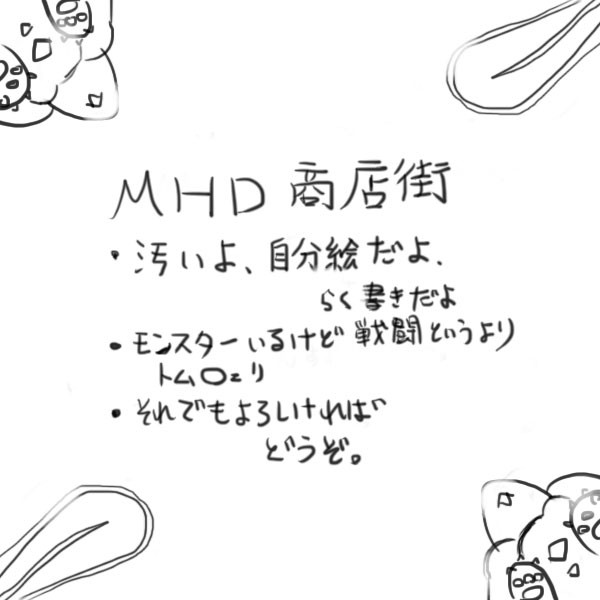 MHD 商店街
・汚いよ、自分絵だよ、
らく書きだよ
・モンスターいるけど戦闘というより
トム○ェリ
・それでもよろしければ
どうぞ。